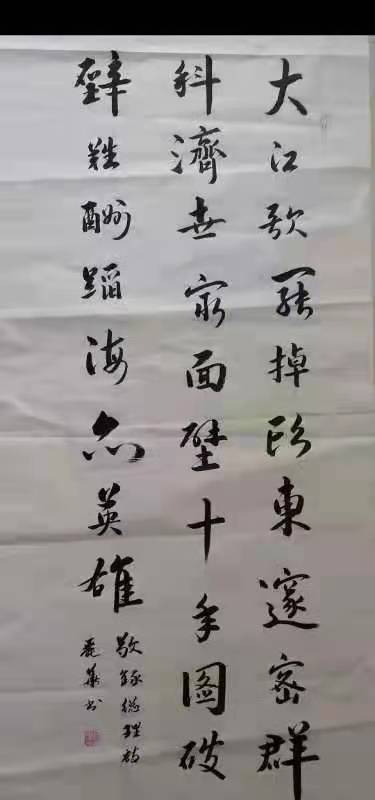 大江歌罷掉頭東邃密群
科濟世窮面壁十年圖破
壁難酬蹈海亦英雄
敬錄總理詩
麗華書